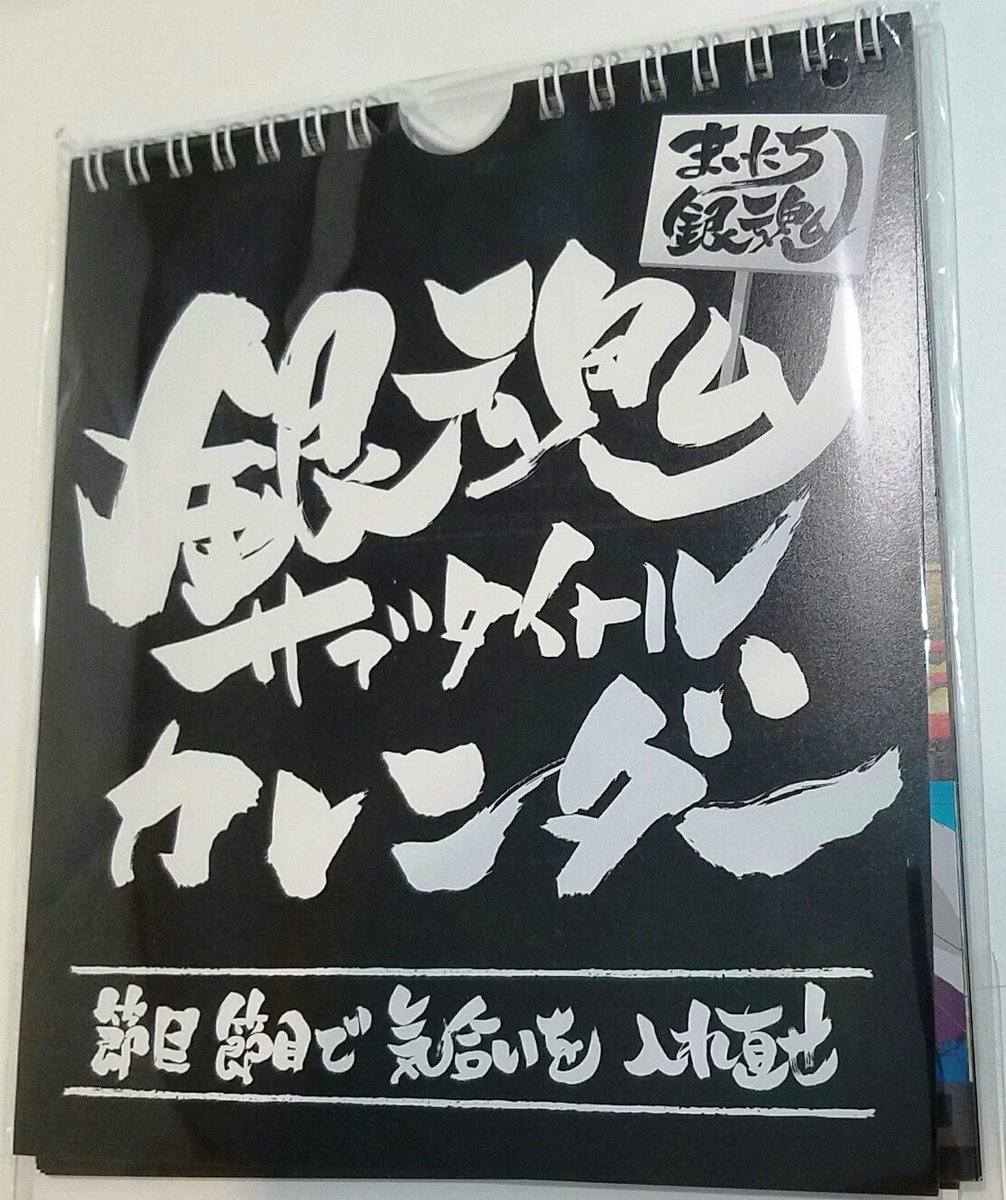 まいにち
銀魂
銀魂
サブタイトル
カレンダー
節目節目で気合いを入れ直せ